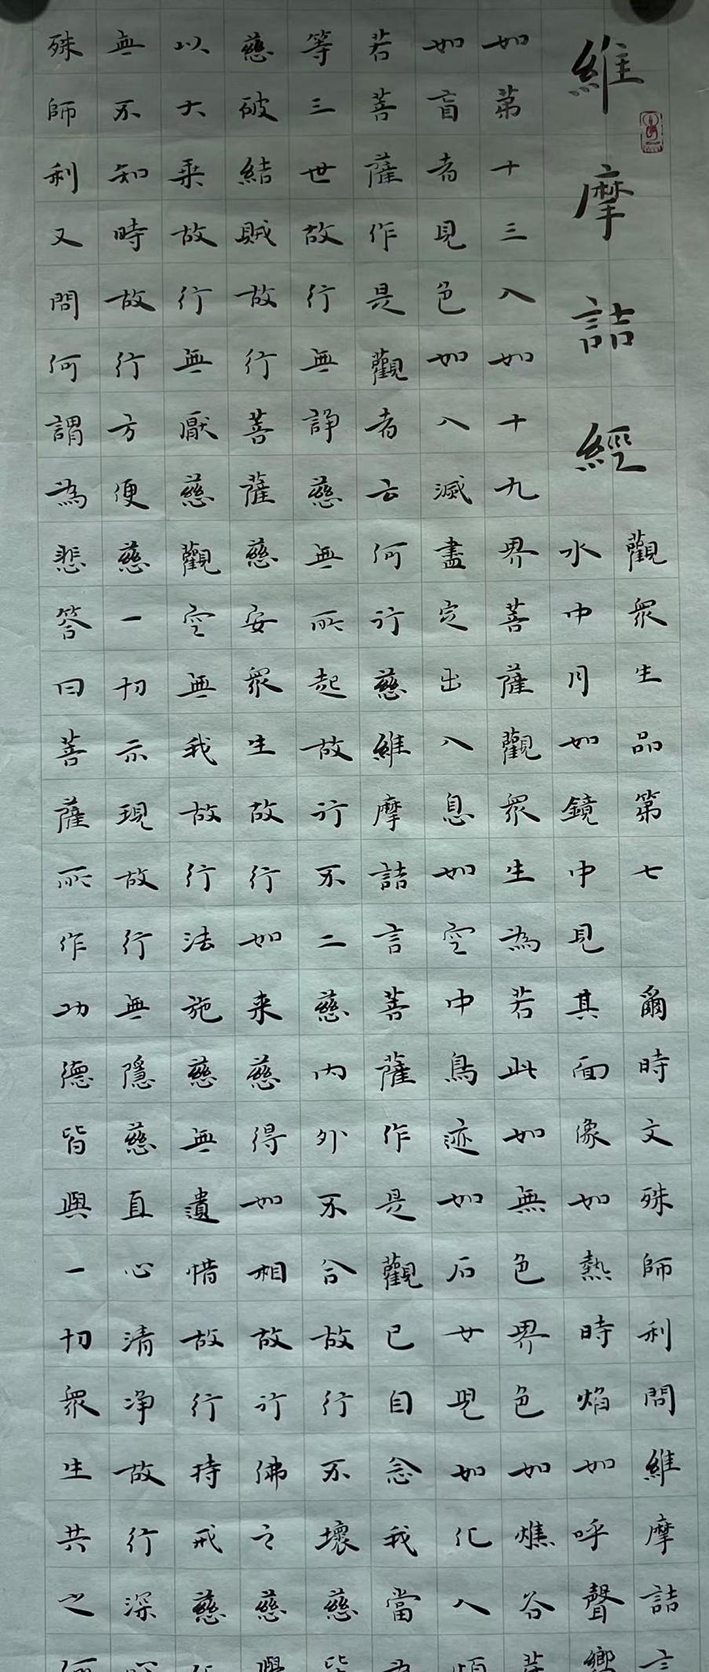 維摩詰經
觀眾生品第七 爾時文殊師利問維摩詰言
水中月如鏡中見其面像如熱時焰如呼聲響
如第十三入如十九界菩薩觀眾生為若此如無色界色如燋谷芽
如盲者見色如入滅盡定出入息如空中鳥迹如石女兒如化人煩
若菩薩作是觀者云何行慈維摩詰言菩薩作是觀已自念我當為
等三世故行無諍慈無所起故行不二慈內外不合故行不壞慈畢
慈破結賊故行菩薩慈安眾生故行如来慈得如相故行佛之慈覺
以大乘故行無厭慈觀空無我故行法施慈無遺惜故行持戒慈化
無不知時故行方便慈一切示現故行無隱慈直心清净故行深心
殊師利又問何謂為悲答曰菩薩所作功德皆與一切眾生共之何